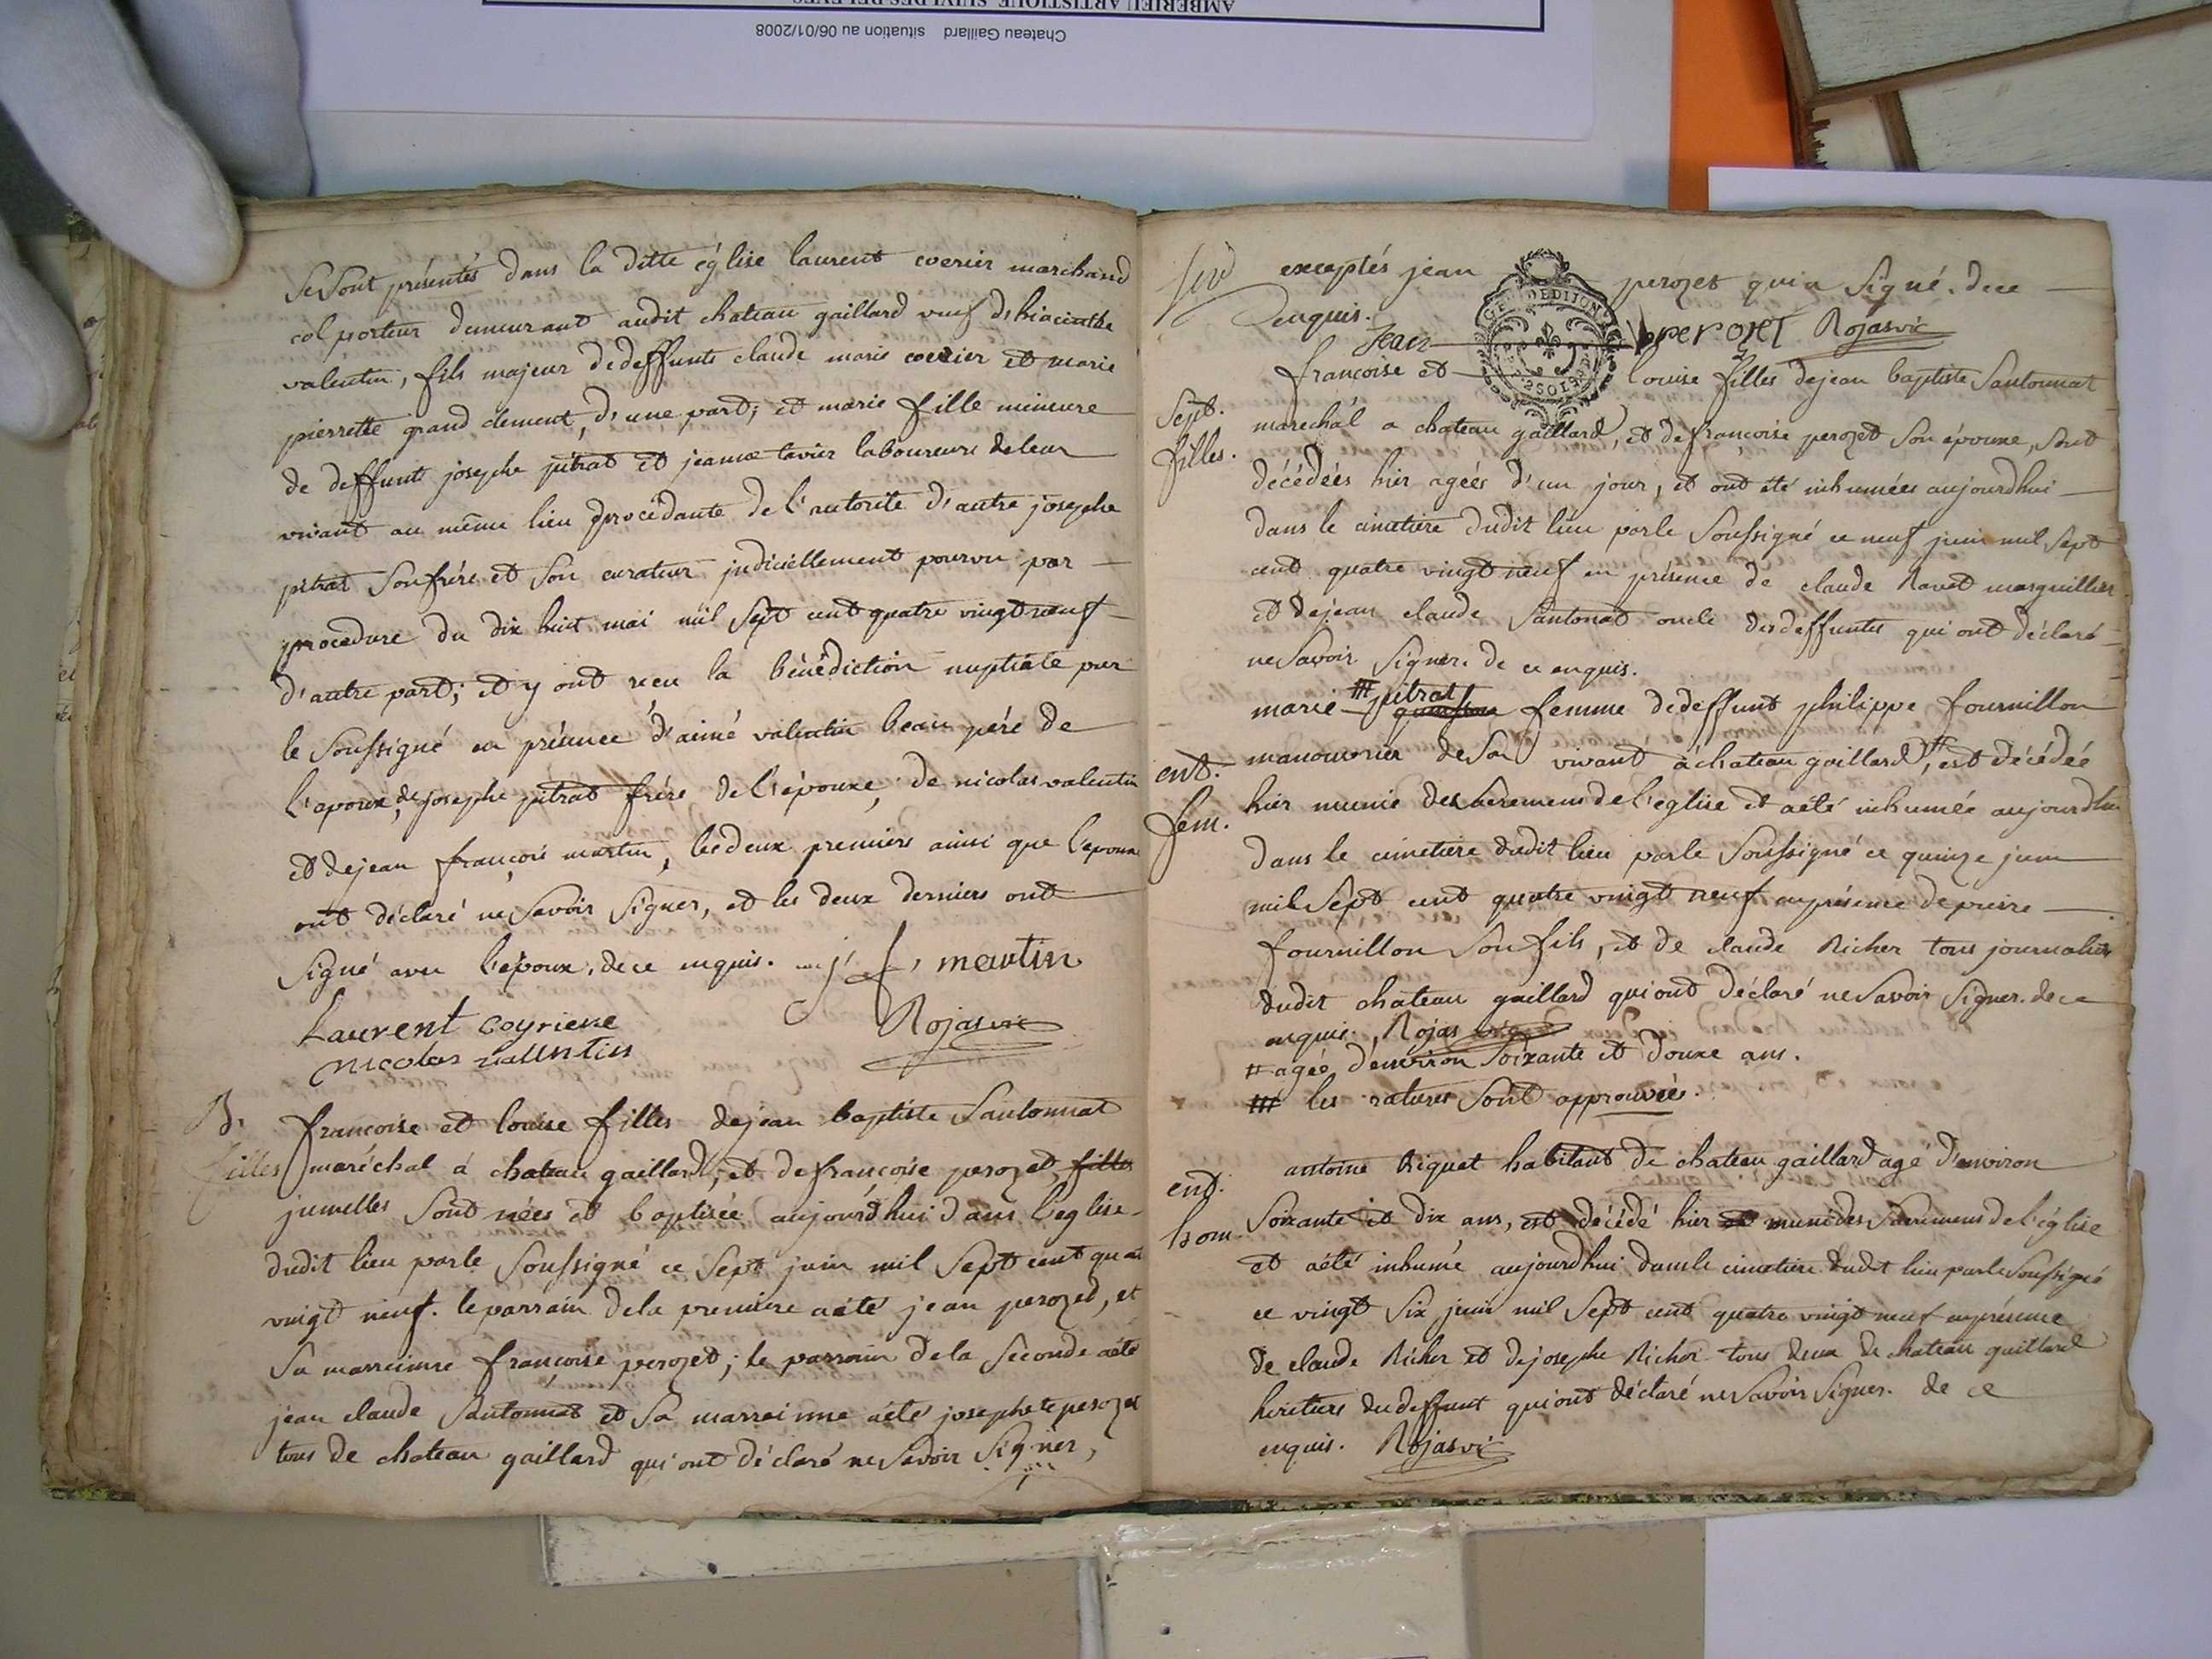 AMBERIEU ARTISTIQUE SUIVI DES RELEVES
Chateau Gaillard situation au 06/01/2008
Se Sont présentés dans la ditte église laurent coerier marchand
colporteur demeurant audit chateau gaillard veuf d'hiacinthe
valentin, fils majeur de deffunts claude marie coerier et marie
pierrette grand clement, d'une part; et marie fille mineure
de deffunts josephe pitrat et jeanne tavier laboureurs de leur
vivant au même lieu procédante de l'autorité d'autre josephe
pitrat Son frére et Son curateur judiciellement pourvu par
procedure du dix huit mai mil Sept cent quatre vingt neuf
d'autre part; et y ont reçu la bénédiction nuptiale par
le Soussigné en présence d'aimé valentin beau pére de
l'epoux, de josephe pitrat frére de l'épouse, de nicolas valentin
et de jean françois martin, les deux premiers ainsi que l'epouse
ont déclaré ne Savoir Signer, et les deux derniers ont
Signé avec l'époux, de ce enquis. j f martin
Laurent coyriere Rojas vic
nicolas vallentin
B. françoise et louise filles de jean baptiste Santonnat
filles maréchal à chateau gaillard, et de françoise perozet, filles
jumelles Sont nées et baptisée aujourd'hui dans l'eglise
dudit lieu par le Soussigné ce Sept juin mil Sept cent quatre
vingt neuf. le parrain de la premiere a été jean perozet, et
Sa marreinne françoise perozet; le parrain de la Seconde a été
jean claude Santonnat et Sa marreinne a été josephete perozet
tous de chateau gaillard qui ont déclaré ne Savoir Signer,
exceptés jean perozet qui a Signé. de ce
enquis.
Jean perozet Rojas vic
françoise et louise filles de jean baptiste Santonnat
Sept. marechal a chateau gaillard, et de françoise perozet Son épouse, Sont
filles. décédées hier agées d'un jour, et ont été inhumées aujourdhui
dans le cimetiere dudit lieu par le Soussigné ce neuf juin mil Sept
cent quatre vingt neuf en présence de claude Ravet marguillier
et de jean claude Santonat oncle des deffuntes qui ont déclaré
ne Savoir Signer. de ce enquis.
marie pitrat femme de deffunt philippe fournillon
ent. manouvrier de Son vivant à chateau gaillard, est décédée
fem. hier munie des Sacremens de l'eglise et a été inhumée aujourdhui
dans le cimetiere dudit lieu par le Soussigné ce quinze juin
mil Sept cent quatre vingt neuf en présence de pierre
fournillon Son fils, et de claude Richer tous journaliers
dudit chateau gaillard qui ont déclaré ne Savoir Signer. de ce
enquis. Rojas vic
# agée d'environ Soixante et douze ans.
### les ratures Sont approuvées.
antoine Riquet habitant de chateau gaillard agé d'environ
ent. Soixante et dix ans, est décédé hier et muni des Sacremens de l'église
hom. et a été inhumé aujourdhui dans le cimetiere dudit lieu par le Soussigné
ce vingt Six juin mil Sept cent quatre vingt neuf en présence
de claude Richer et de josephe Richer tous deux de chateau gaillard
heritiers du deffunt qui ont déclaré ne Savoir Signer. de ce
enquis. Rojas vic